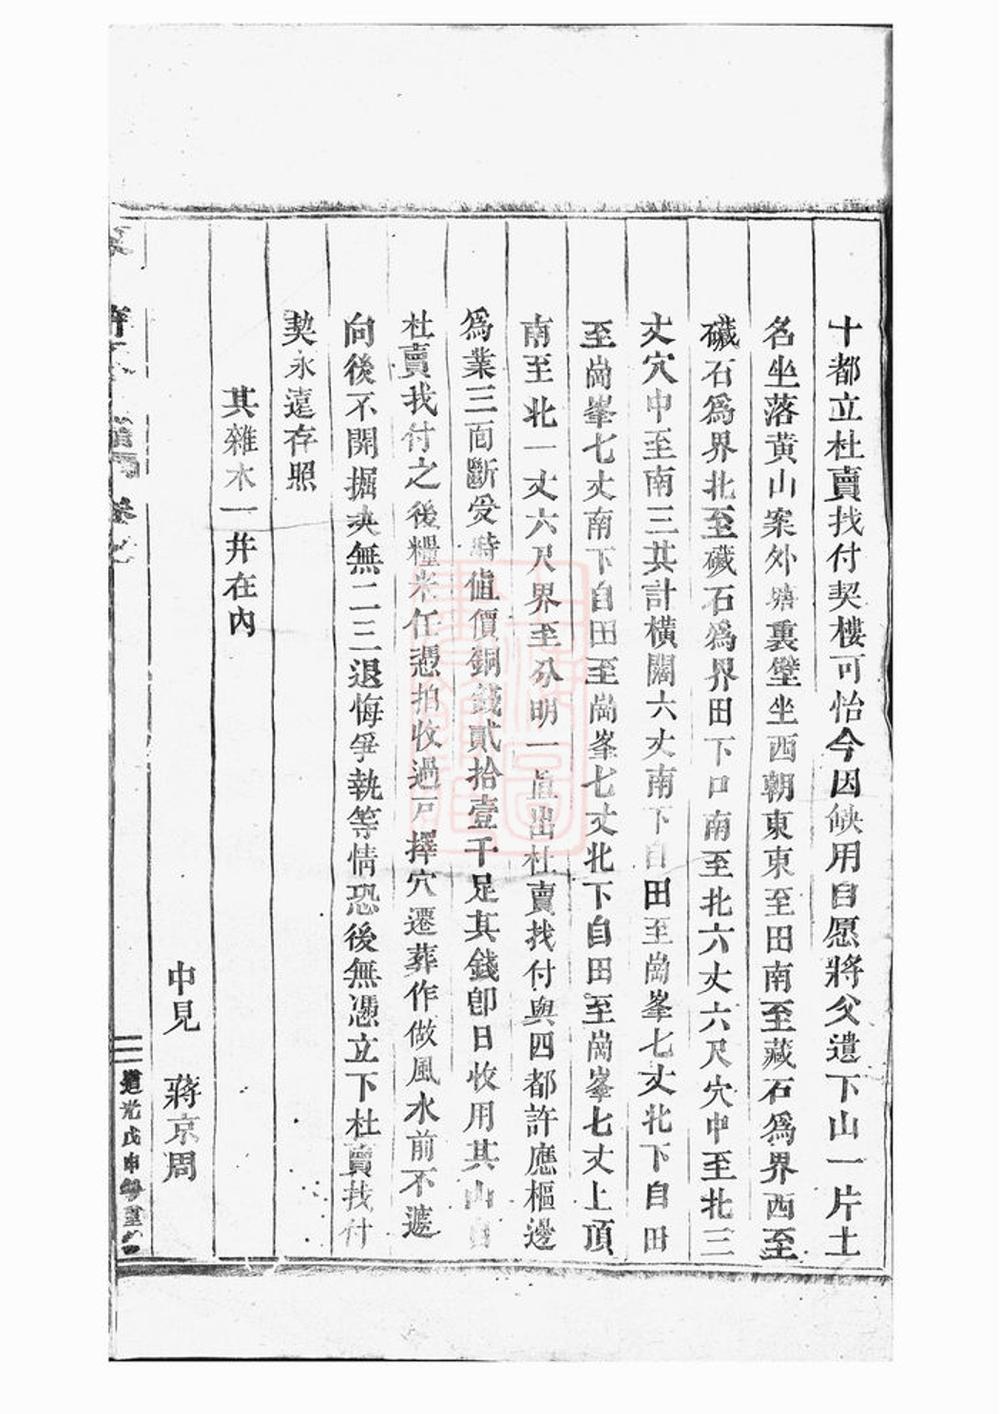 十都立杜賣找付契樓可怡今因缺用自愿將父遺下山一片土
名坐落黄山案外裏壁坐西朝東東至田南至藏石爲界西至
礮石爲界北至礮石爲界田下口南至北六丈六尺穴中至北三
丈穴中至南三共計橫闊六丈南下自田至崗峯七丈北下自田
至崗峯七丈南下自田至崗峯七丈北下自田至崗峯七丈上頂
南至北一丈六尺界至分明一直出杜賣找付與四都許應樞邊
爲業三面斷受時値價銅錢貳拾壹千足其錢卽日收用其山自
杜賣找付之後糧米任憑拍收過戸擇穴遷葬作做風水前不遞
向後不開掘決無二三退悔爭執等情恐後無憑立下杜賣找付
契永遠存照
其雜木一并在内
中見　蔣京周
三 道光戊申